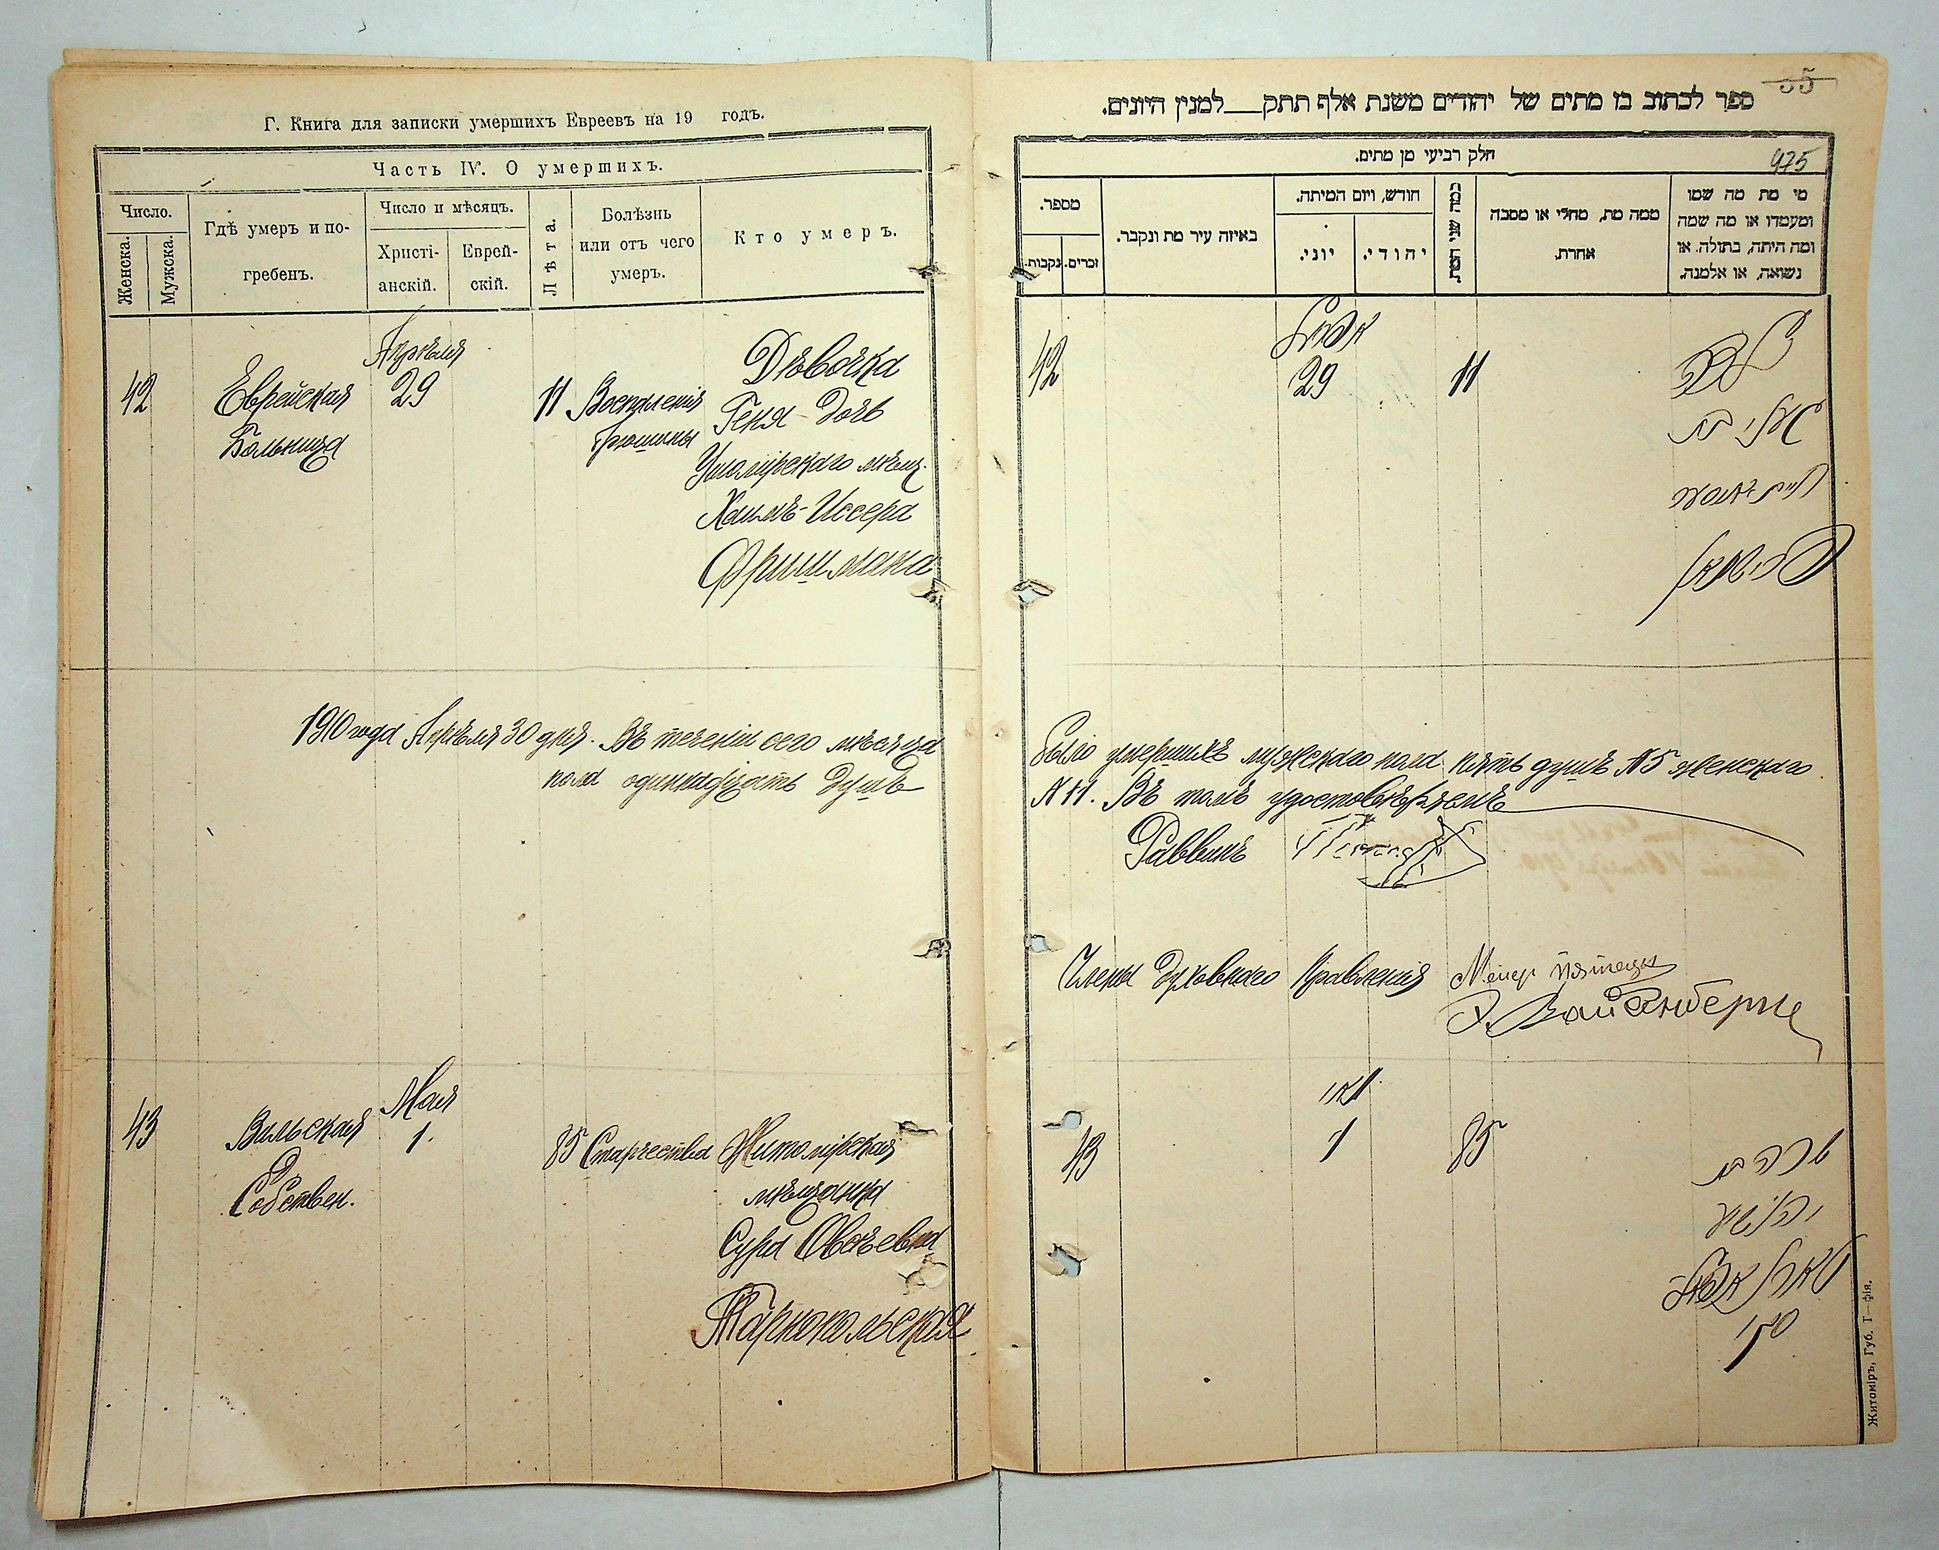 Г. Книга для записки умершихъ Евреевъ на 19 годъ.
Часть IV. О умершихъ.
Число.
Женска.
Мужска.
Гдѣ умеръ и по-
гребенъ.
Число и мѣсяцъ.
Христі-
анскій.
Еврей-
скій.
Лѣта.
Болѣзнь
или отъ чего
умеръ.
Кто умеръ.
42
Еврейская
Больница
Апрѣля
29
11
Воспаленія
брюшины
Дѣвочка
Геня дочь
Ушомірскаго мѣщ.
Хаимъ-Иссера
Фришмана
1910 года Апрѣля 30 дня. Въ теченіи сего мѣсяца
пола одиннадцать душъ
43
Вильская
Собствен.
Мая
1.
85
Старчества
Житомірская
мѣщанка
Сура Овсѣевна
Тарнопольская
35
ספר לכתוב בו מתים של יהודים משנת אלף תתק___למנין היונים.
975
חלק רביעי מן מתים.
מספר.
נקבות.
זכרים.
באיזה עיר מת ונקבר.
חודש, ויום המיתה.
יוני.
יהודי.
כמה שני המת
ממה מת, מחלי או מסבה
אחרת.
מי מת מה שמו
ומעמדו או מה שמה
ומה היתה, בתולה, או
נשואה, או אלמנה.
42
אפריל
29
11
חיים-איסר
פרישמאן
было умершихъ мужскаго пола пять душъ N 5 женскаго
N 11. Въ томъ удостовѣряемъ
Раввинъ
Члены Духовнаго Правленія
Мейер
Вайсенберг
43
מאי
1
85
שרה בת
יהושע
טארנאפאל
סקי
Житоміръ, Губ. Т—фія.